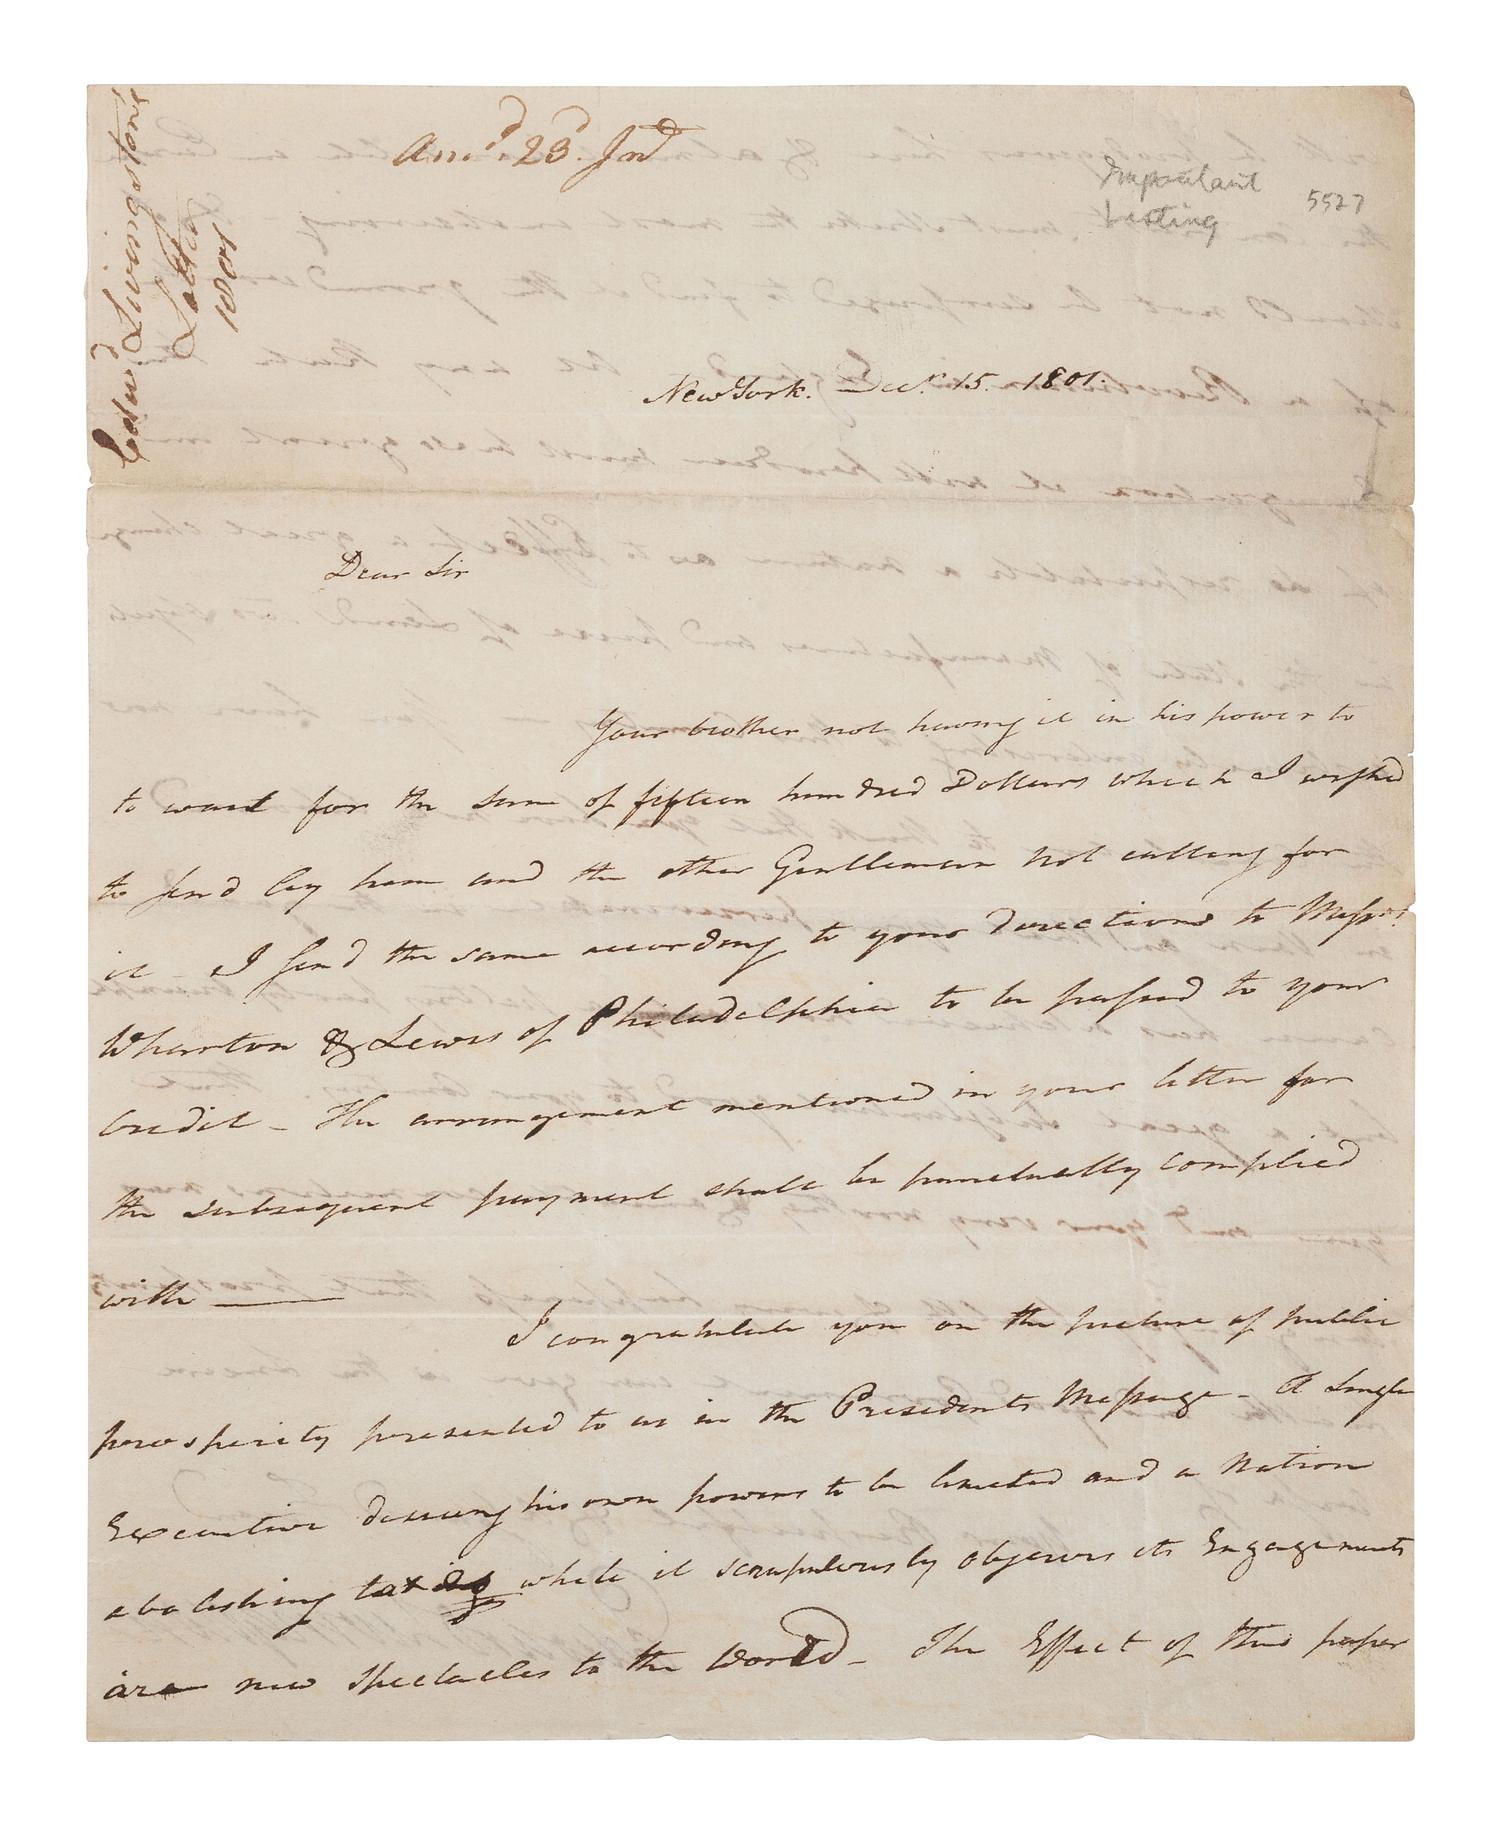 Edwd Livingston's
Letter
1801
Ansd. 23d. Jnd
Important
5527
New York. Decr. 15. 1801.
Dear Sir
Your brother not having it in his power to
to wait for the sum of fifteen hundred Dollars which I wished
to send by him and the other Gentleman not calling for
it - I send the same according to your directions to Messrs.
Wharton & Lewis of Philadelphia to be passed to your
Credit - The arrangement mentioned in your letter for
the subsequent payment shall be punctually complied
with ———
I congratulate you on the picture of public
prosperity presented to us in the Presidents Message - A single
Executive desiring his own powers to be limited and a Nation
abolishing taxing while it scrupulously observes its Engagements
are new spectacles to the World - The Effect of this paper